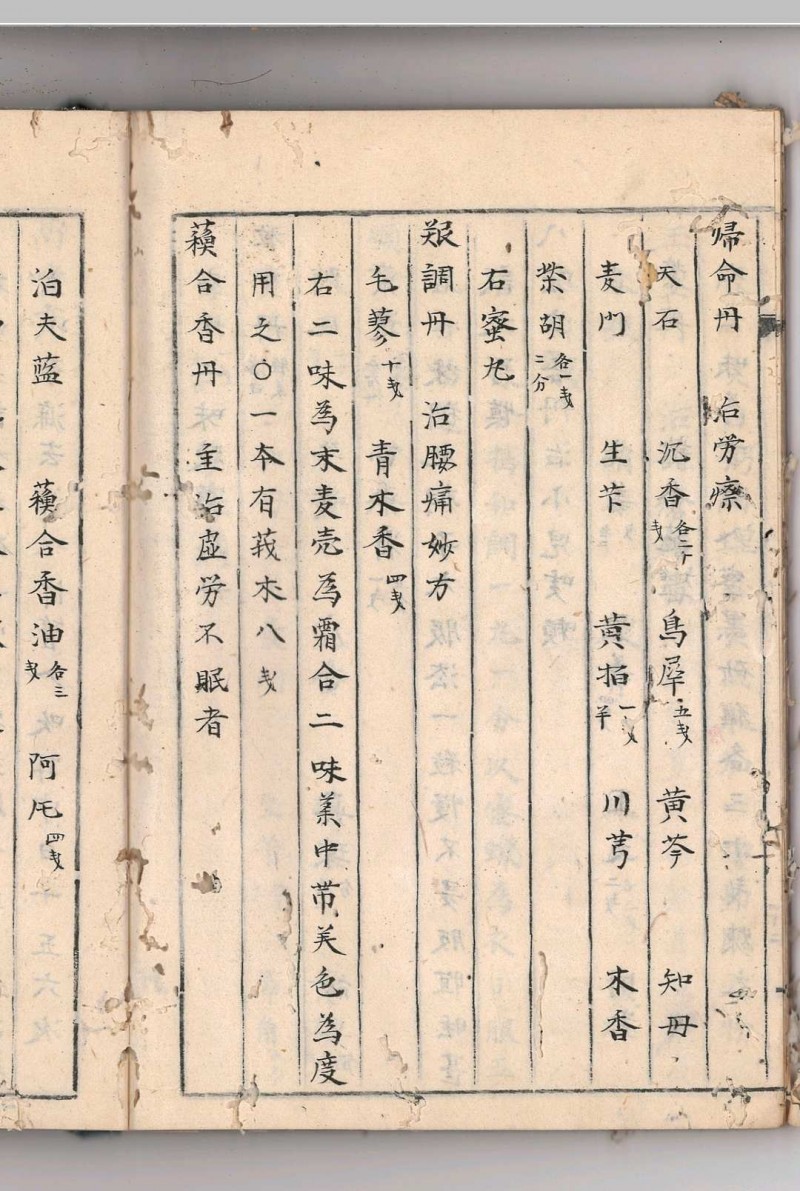 帰命丹 治労瘵
天石 沉香各二丁戋 烏犀五戋 黄芩 知母
麦門 生芐 黄栢一戋半 川芎 木香
柴胡各一戋二分
右蜜丸
艰調丹 治腰痛妙方
毛蓼十戋 青木香四戋
右二味為末麦壳為霜合二味業中帯美色為度
用之〇一本有莪朮八戋
蘓合香丹 主治虚労不眠者
泊夫蓝 蘓合香油各三戋 阿芼四戋